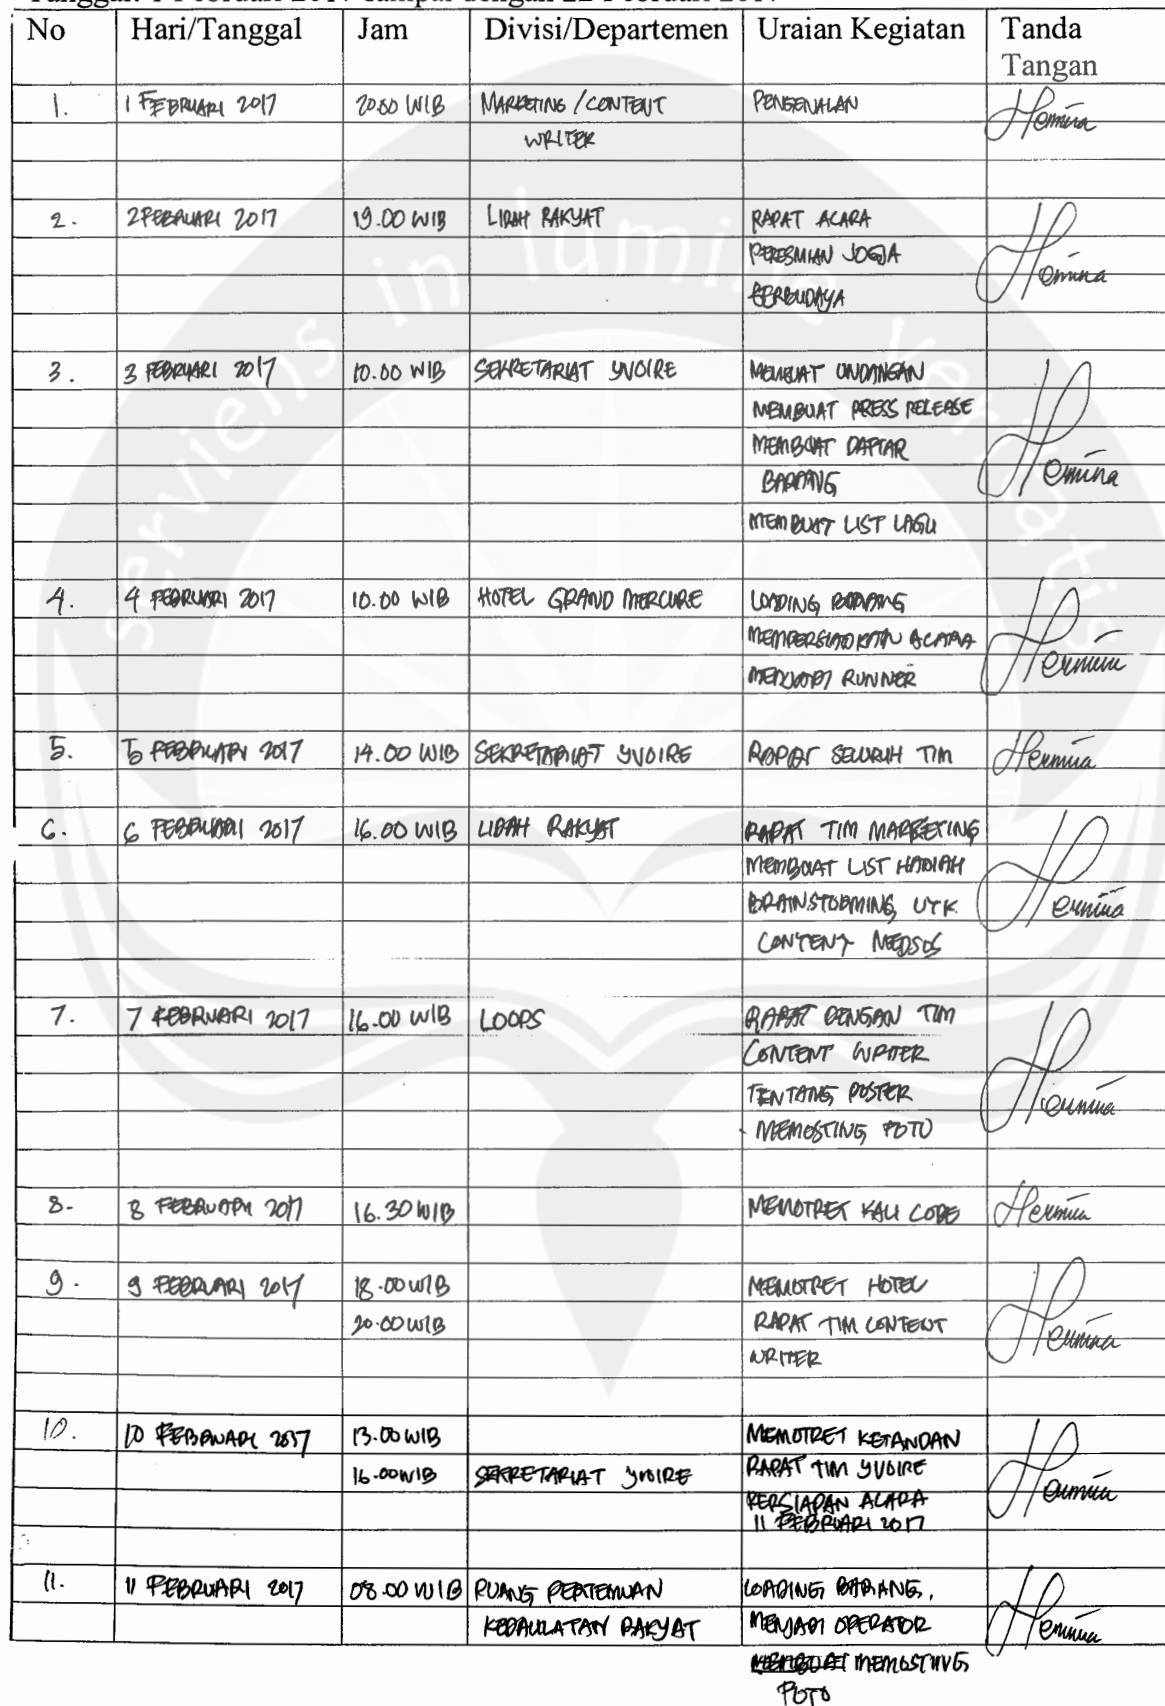 Tanggal: 1 Februari 2017 sampai dengan 22 Februari 2017
No Hari/Tanggal Jam Divisi/Departemen Uraian Kegiatan Tanda
Tangan
1. 1 FEBRUARI 2017 20.00 WIB MARKETING / CONTENT PENGENALAN Hermina
WRITER
2. 2 FEBRUARI 2017 19.00 WIB LIDAH RAKYAT RAPAT ACARA Hermina
PERESMIAN JOGJA
BERBUDAYA
3. 3 FEBRUARI 2017 10.00 WIB SEKRETARIAT YVOIRE MEMBUAT UNDANGAN Hermina
MEMBUAT PRESS RELEASE
MEMBUAT DAFTAR
BARANG
MEMBUAT LIST LAGU
4. 4 FEBRUARI 2017 10.00 WIB HOTEL GRAND MERCURE LOADING BARANG Hermina
MEMPERSIAPKAN ACARA
MENJADI RUNNER
5. 5 FEBRUARI 2017 14.00 WIB SEKRETARIAT YVOIRE RAPAT SELURUH TIM Hermina
6. 6 FEBRUARI 2017 16.00 WIB LIDAH RAKYAT RAPAT TIM MARKETING Hermina
MEMBUAT LIST HADIAH
BRAINSTORMING UTK
CONTENT MEDSOS
7. 7 FEBRUARI 2017 16.00 WIB LOOPS RAPAT DENGAN TIM Hermina
CONTENT WRITER
TENTANG POSTER
MEMOSTING FOTO
8. 8 FEBRUARI 2017 16.30 WIB MEMOTRET KALI CODE Hermina
9. 9 FEBRUARI 2017 18.00 WIB MEMOTRET HOTEL Hermina
20.00 WIB RAPAT TIM CONTENT
WRITER
10. 10 FEBRUARI 2017 13.00 WIB MEMOTRET KETANDAN Hermina
16.00 WIB SEKRETARIAT YVOIRE RAPAT TIM YVOIRE
PERSIAPAN ACARA
11 FEBRUARI 2017
11. 11 FEBRUARI 2017 08.00 WIB RUANG PERTEMUAN LOADING BARANG, Hermina
KEDAULATAN RAKYAT MENJADI OPERATOR
MEMBUAT MEMOSTING
FOTO
serviens in lumine veritatis